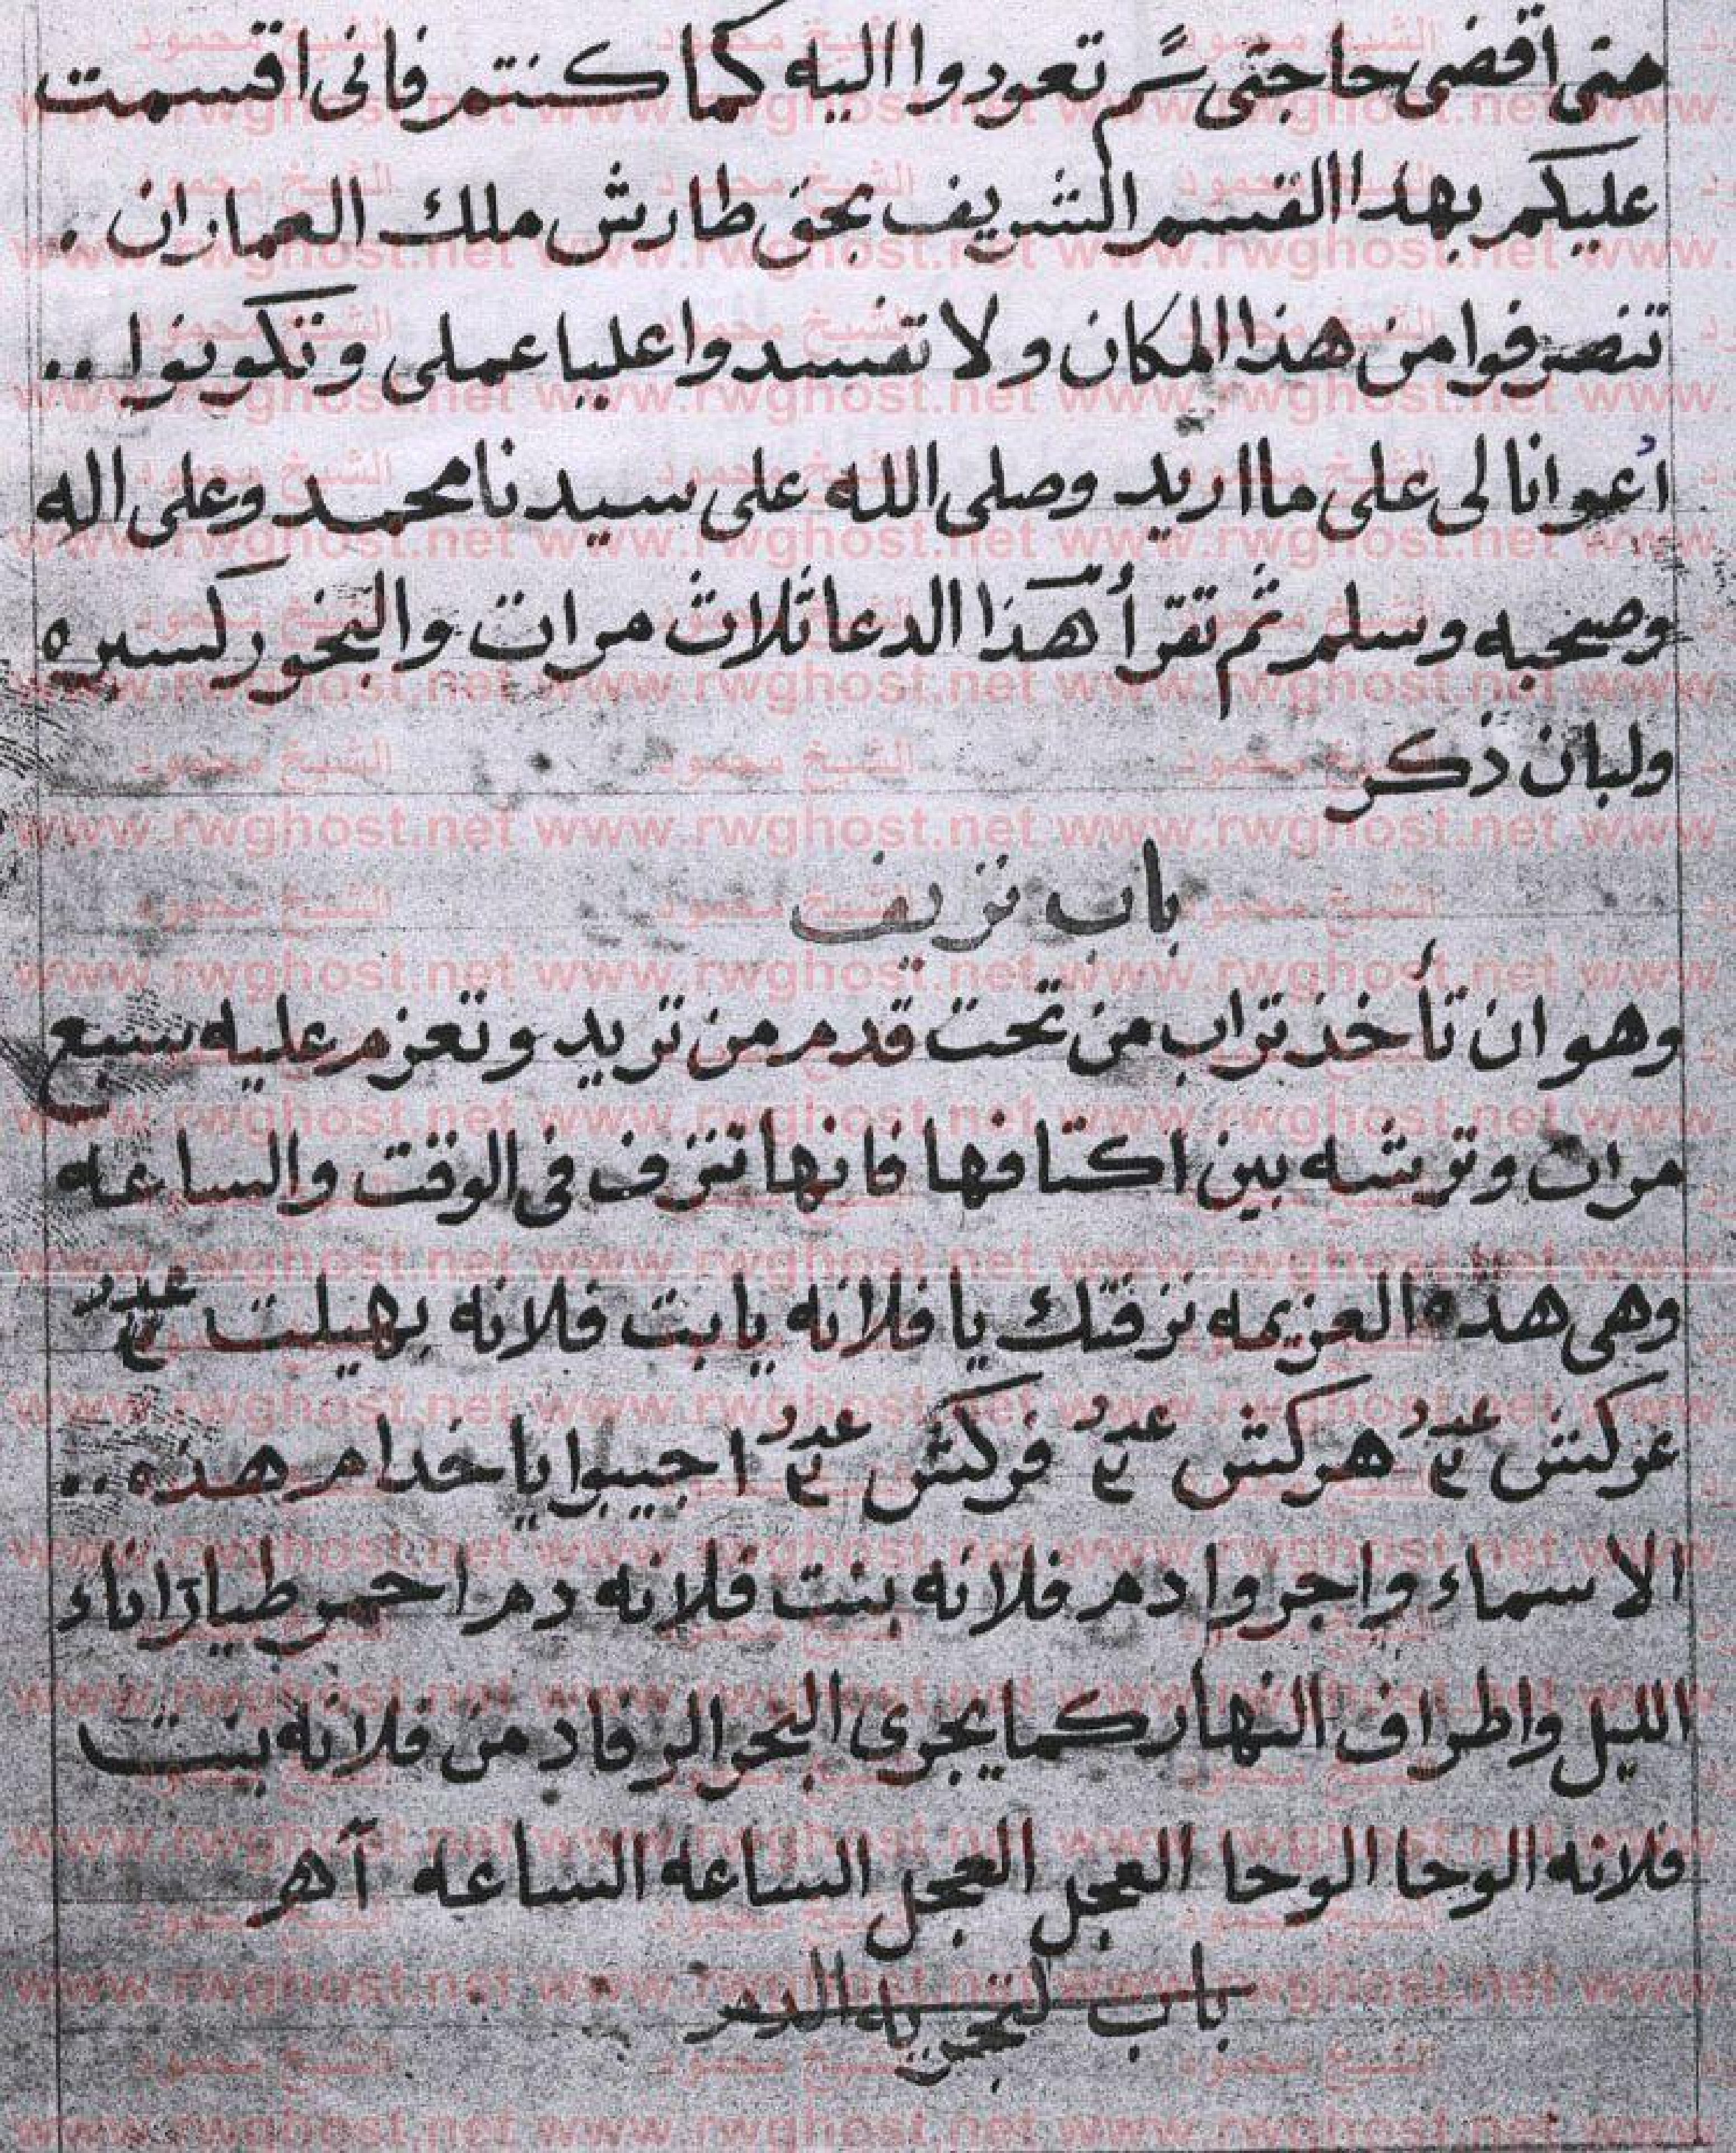 حتى أقضى حاجتى ثم تعودوا اليه كما كنتم فانى اقسمت
عليكم بهذا القسم الشريف بحق طارش ملك العماران .
تنصرفوا من هذا المكان ولا تفسدوا عليا عملى وتكونوا ..
اعوانا لى على ما اريد وصلى الله على سيدنا محمد وعلى اله
وصحبه وسلم ثم تقرأ هذا الدعا ثلاث مرات والبخور كسبره
ولبان ذكر
باب نزيف
وهو ان تأخذ تراب من تحت قدم من تريد وتعزم عليه سبع
مرات وترشه بين اكتافها فانها تنزف فى الوقت والساعه
وهى هذه العزيمه نزفتك يا فلانه يا بت فلانه بهيلت عدد ع
عركش عدد ع هركش عدد ع فركش عدد ع اجيبوا يا خدام هذه ..
الاسماء واجروا دم فلانه بنت فلانه دم احمر طيارا اناء
الليل واطراف النهار كما يجرى البحر الرفاد من فلانه بنت
فلانه الوحا الوحا العجل العجل الساعه الساعه آهر
باب لتجربه الدم
www.rwghost.net
الشيخ محمود